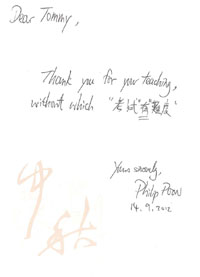 Dear Tommy,
Thank you for your teaching,
without which "考試有難度"
Yours sincerely,
Philip Poon
14.9.2012
中秋